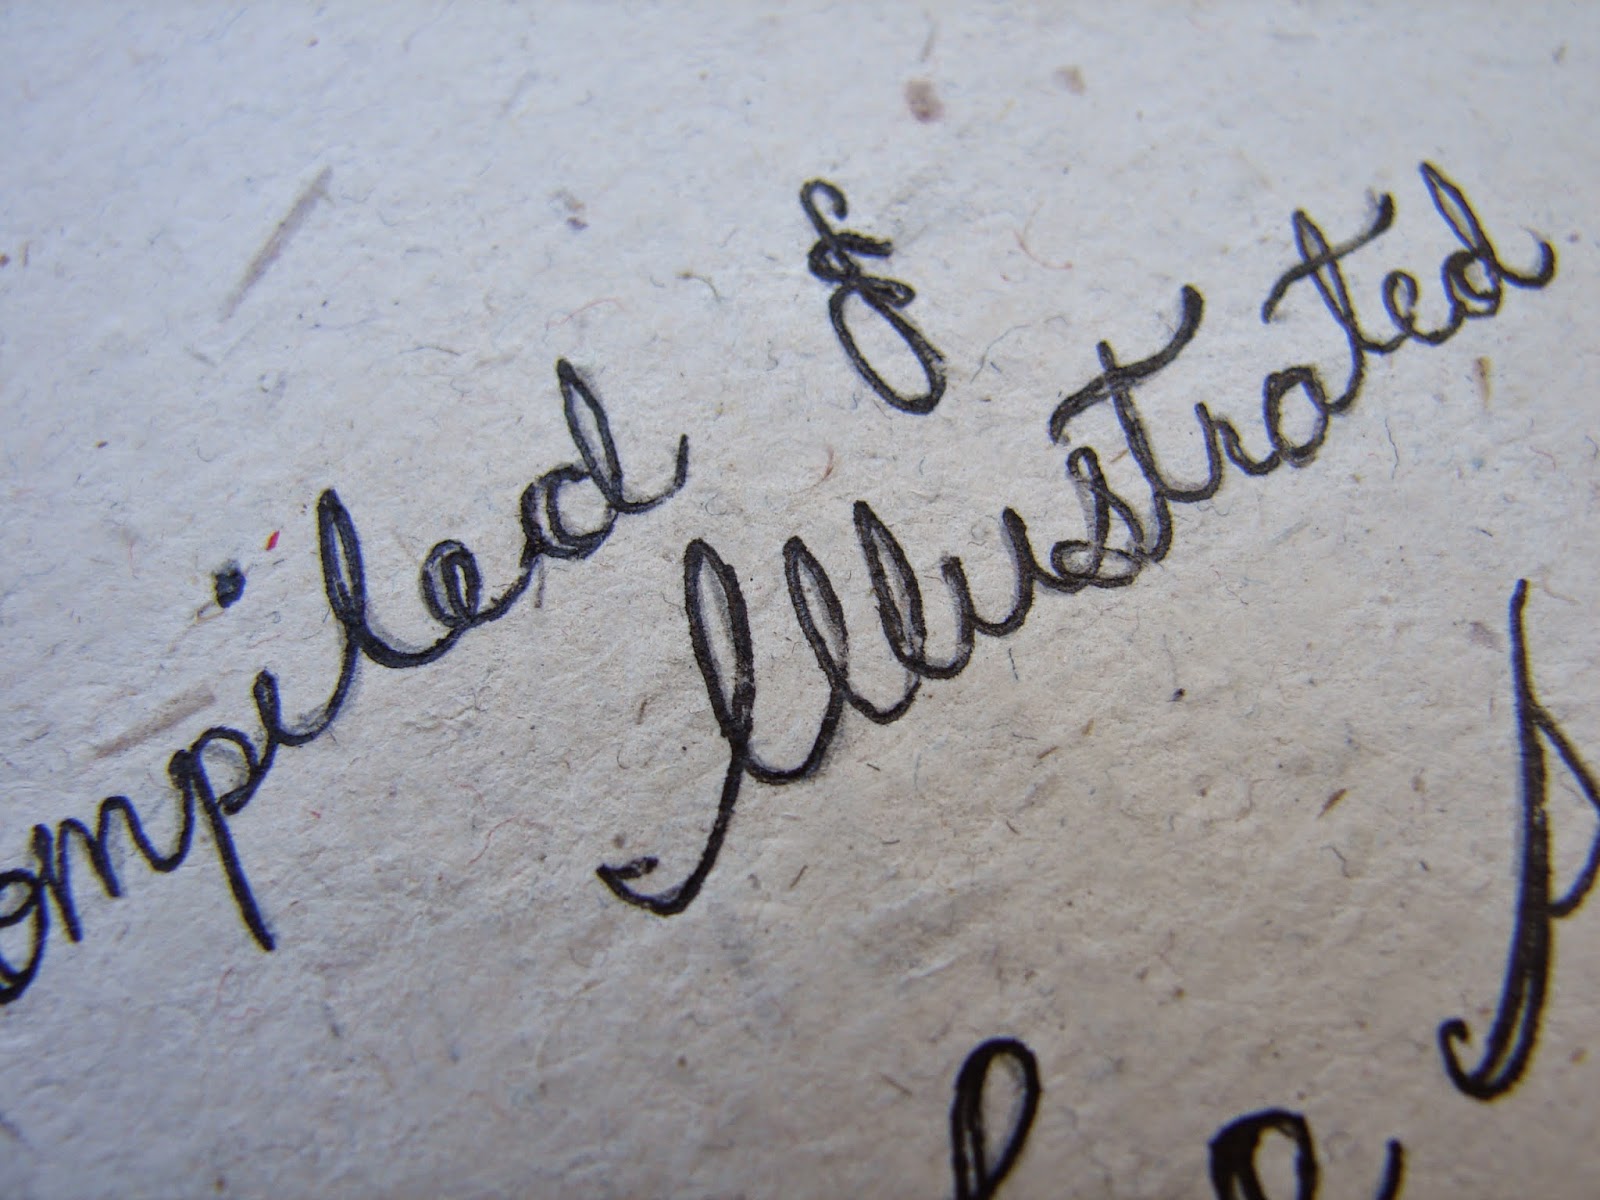 ompiled &
Illustrated